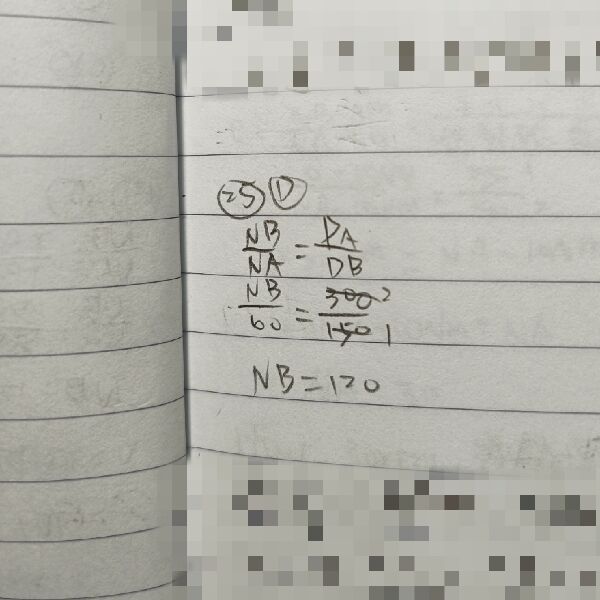 25 D
NB/NA = DA/DB
NB/60 = 300/150 2 1
NB = 120